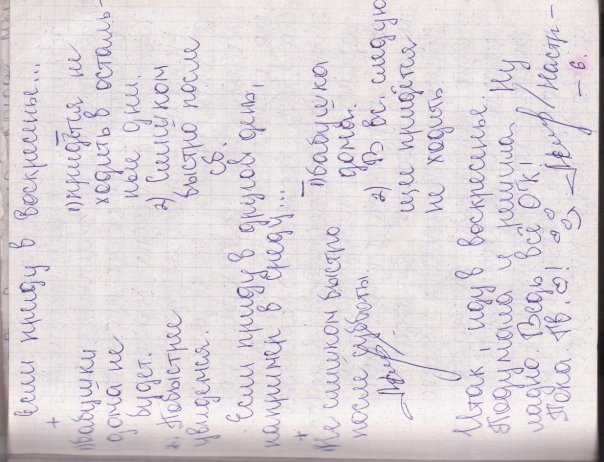 Если приду в воскресенье...
+
1) Бабушки
дома не
будет.
2. Побыстрее
увидемся.
—
1) придётся не
ходить в осталь-
ные дни.
2) Слишком
быстро после
сб.
Если приду в другой день,
например в среду...
+
1) Не слишком быстро
после субботы
—
1) Бабушка
дома.
2) До вс. следую
щее придётся
не ходить
Итак, иду в воскресенье.
Подумала и решила. Ну
ладно. Ведь всё ОК!
Пока. Пв.
Настр-
– 6.